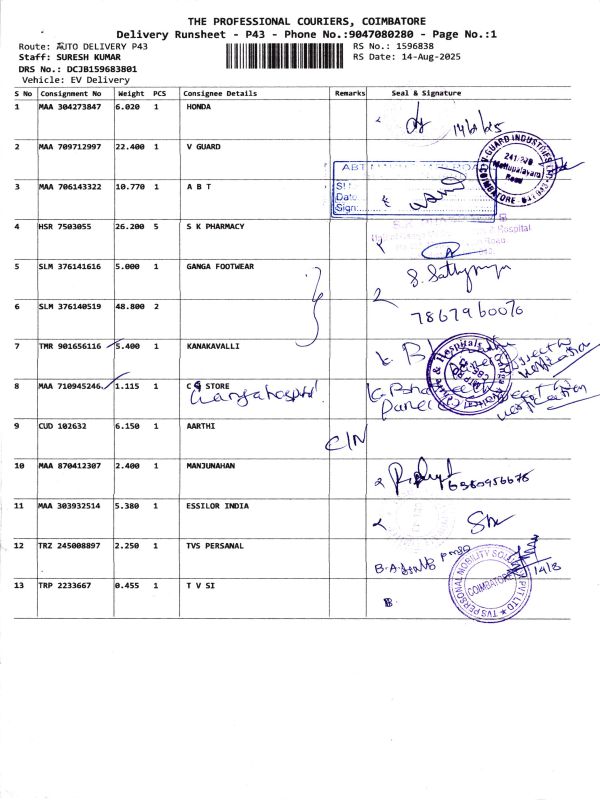 THE PROFESSIONAL COURIERS, COIMBATORE
Delivery Runsheet - P43 - Phone No.:9047080280 - Page No.:1
Route: AUTO DELIVERY P43
RS No.: 1596838
Staff: SURESH KUMAR
RS Date: 14-Aug-2025
DRS No.: DCJB159683801
Vehicle: EV Delivery
S No Consignment No Weight PCS Consignee Details Remarks Seal & Signature
1 MAA 304273847 6.020 1 HONDA
14/8/25
2 MAA 709712997 22.400 1 V GUARD
V-GUARD INDUSTRIES LTD
Mettupalayam Road
COIMBATORE
3 MAA 706143322 10.770 1 A B T
ABT
Date
Sign:
4 HSR 7503055 26.200 5 S K PHARMACY
Hospital
Road
5 SLM 376141616 5.000 1 GANGA FOOTWEAR
S. Sathya
6 SLM 376140519 48.800 2
7867960076
7 TMR 901656116 5.400 1 KANAKAVALLI
8 MAA 710945246 1.115 1 C STORE
Ganga hospital
9 CUD 102632 6.150 1 AARTHI
C/N
10 MAA 870412307 2.400 1 MANJUNAHAN
6380956678
11 MAA 303932514 5.380 1 ESSILOR INDIA
12 TRZ 245008897 2.250 1 TVS PERSANAL
TVS PERSONAL MOBILITY SOLUTION PVT LTD
COIMBATORE
14/8
13 TRP 2233667 0.455 1 T V SI